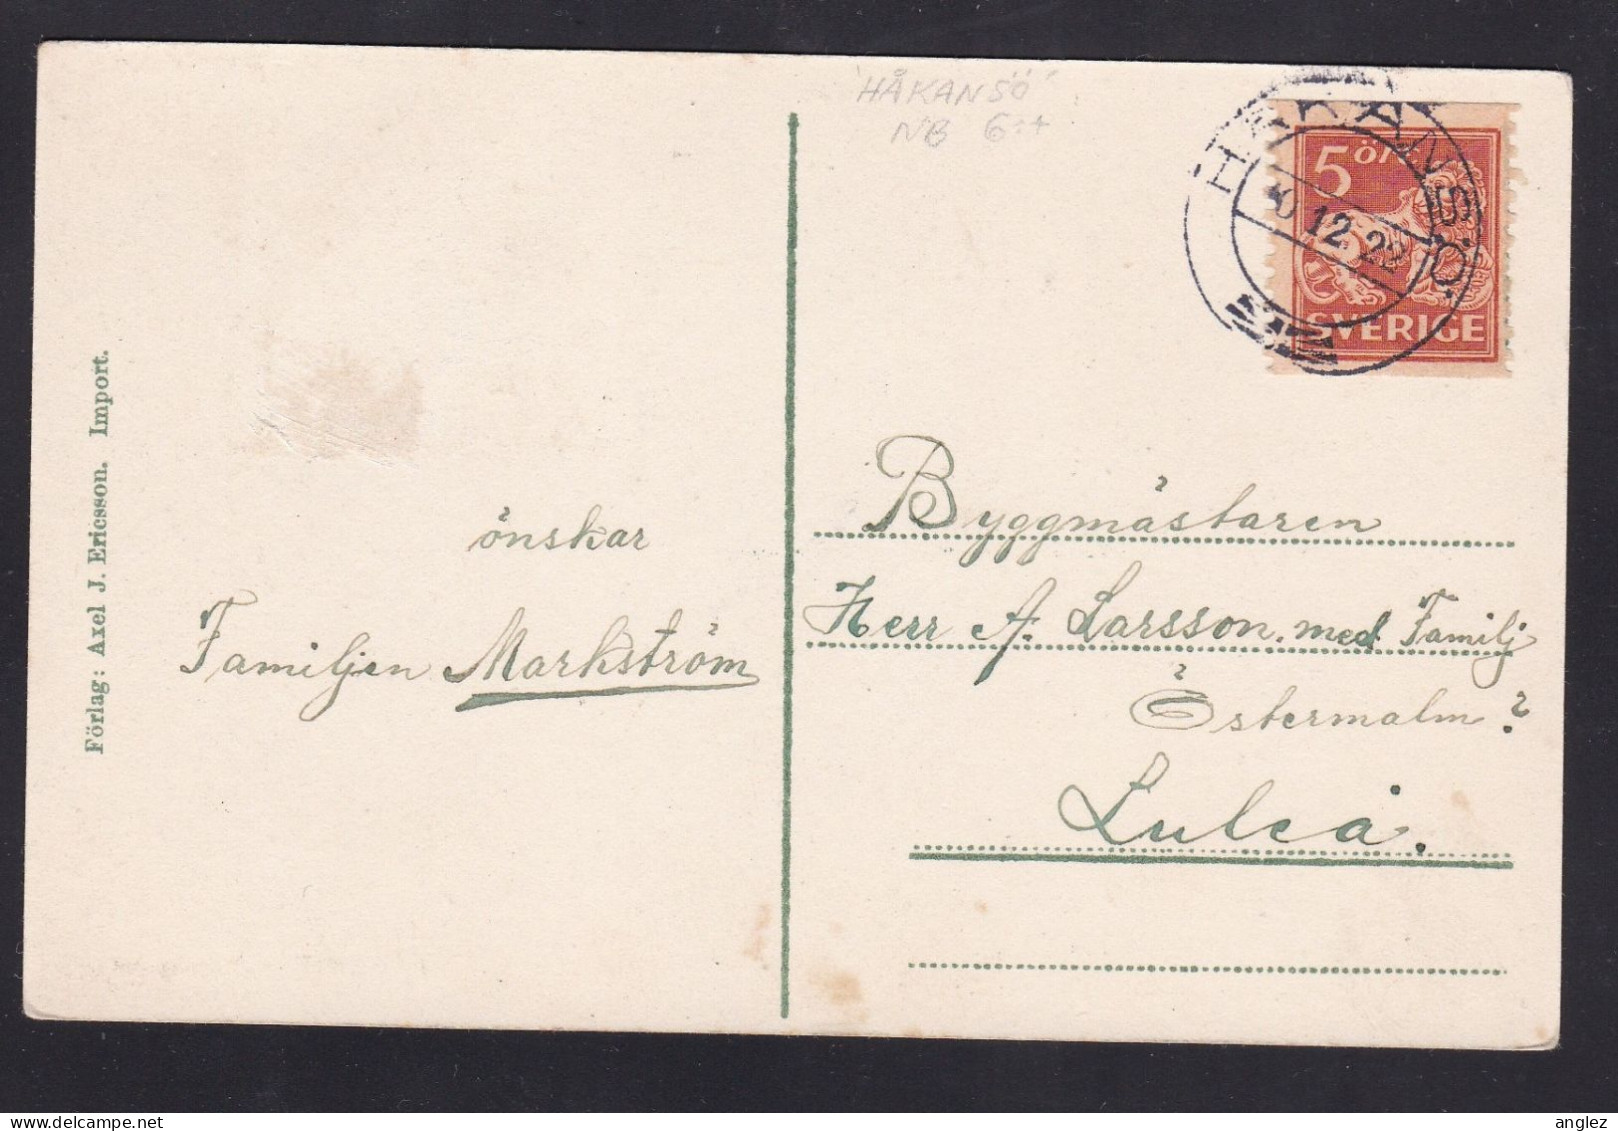 'HÅKANSÖ'
NB 6:+
HÅKANSÖ.
12.22
5 ÖRE
SVERIGE
Förlag: Axel J. Ericsson. Import.
önskar
Familjen Markström
Byggmästaren
Herr A. Larsson. med Familj
Östermalm.
Luleå.
anglez